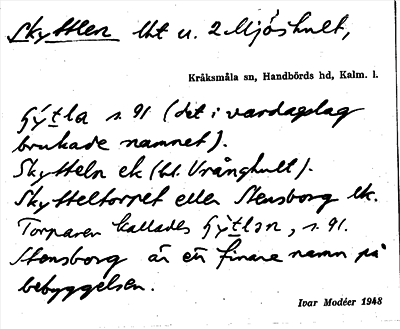 Skyttlen lht u. 2 Mjöshult,
Kråksmåla sn, Handbörds hd, Kalm. l.
s. 91 (det i vardagslag
brukade namnet).
Skytteln ek (bl. Vrånghult).
Skytteltorpet eller Stensborg lk.
Torparen kallades s. 91.
Stensborg är ett finare namn på
bebyggelsen.
Ivar Modéer 1948